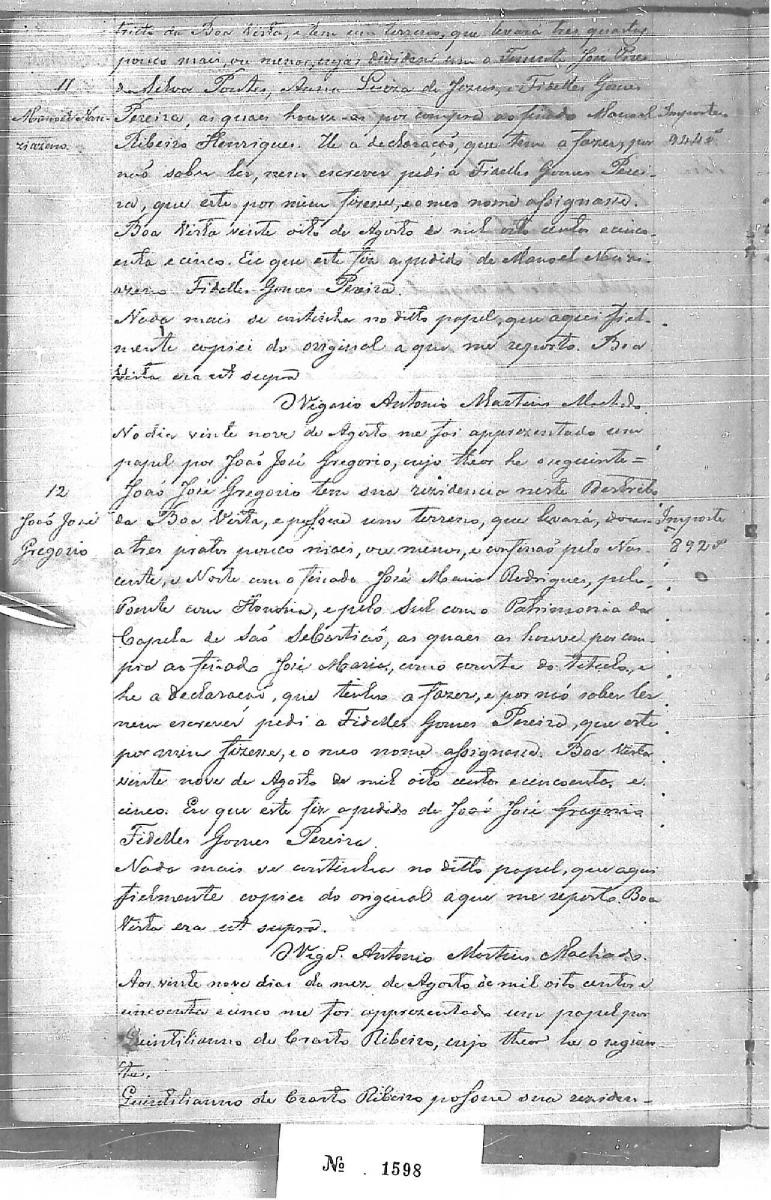 tricto da Boa Vista, e tem um terreno, que levará tres quartas
pouco mais, ou menos, cujas dividem com o Tenente José Pires
11
da Silva Pontes, Anna Luiza de Jezus, e Fidelles Gomes
Manoel Nan-
ziazeno
Pereira, as quaes houve-as por compra ao finado Manoel
Importa
944
Ribeiro Henriques. He a declaração, que tem a fazer, por
não saber ler, nem escrever pedi á Fidelles Gomes Perei-
ra, que este por mim fizesse, e o meu nome assignasse.
Boa Vista vinte oito de Agosto de mil oito centos e cinco-
enta e cinco. Eu que este fiz a pedido de Manoel Nanzi-
azeno Fidelles Gomes Pereira.
Nada mais se continha no ditto papel, que aqui fiel-
mente copiei do original a que me reporto. Boa
Vista era ut supra
O Vigario Antonio Martins Machado.
No dia vinte nove de Agosto me foi apprezentado um
papel por João José Gregorio, cujo theor he o seguinte=
12
João José Gregorio tem sua rezidencia neste Destricto
João José
Gregorio
da Boa Vista, e possue um terreno, que levará, dous
Importa
892
a tres pratos pouco mais, ou menos, e confinão pelo Nas-
cente, e Norte com o finado José Maria Rodrigues, pelo
Poente com Honoria, e pelo Sul com o Patrimonio da
Capela de São Sebastião, as quaes as houve por com-
pra ao finado José Maria, como consta do Titulo, e
he a declaração, que tenho a fazer, e por não saber ler
nem escrever pedi a Fidelles Gomes Pereira, que este
por mim fizesse, e o meo nome assignasse. Boa Vista
vinte nove de Agosto de mil oito centos e cincoenta, e
cinco. Eu que este fiz a pedido de João José Gregorio
Fidelles Gomes Pereira
Nada mais se continha no ditto papel, que aqui
fielmente copiei do original a que me reporto. Boa
Vista era ut supra.
O Vigr.º Antonio Martins Machado.
Aos vinte nove dias do mez de Agosto de mil oito centos e
cincoenta e cinco me foi apprezentado um papel por
Quintilianno de Crasto Ribeiro, cujo theor he o seguin-
te.
Quintilianno de Crasto Ribeiro possue sua reziden-
Nº 1598